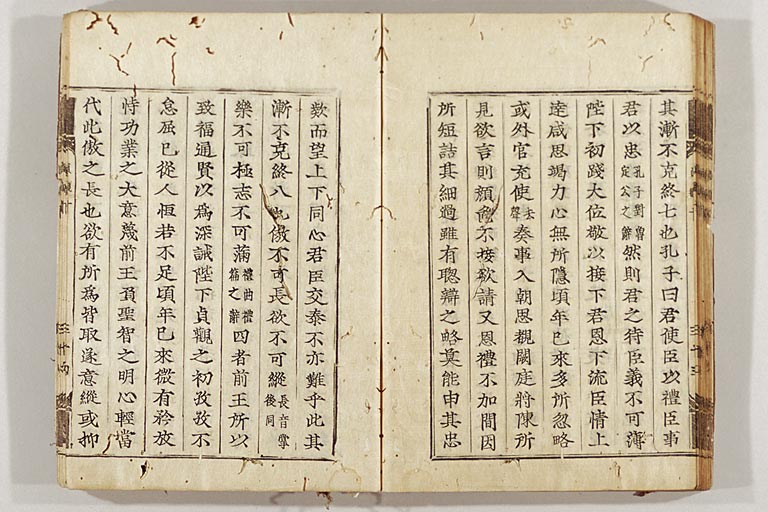 其漸不克終七也孔子曰君使臣以禮臣事
君以忠孔子對魯定公之辭然則君之待臣義不可薄
陛下初踐大位敬以接下君恩下流臣情上
達咸思竭力心無所隱頃年已來多所忽略
或外官充使去聲奏事入朝思覩闕庭將陳所
見欲言則顔色不接欲請又恩禮不加間因
所短詰其細過雖有聰辯之略莫能申其忠
欵而望上下同心君臣交泰不亦難乎此其
漸不克終八也傲不可長欲不可縱長音掌後同
樂不可極志不可滿禮曲禮篇之辭四者前王所以
致福通賢以爲深誡陛下貞觀之初孜孜不
怠屈已從人恒若不足頃年已來微有矜放
恃功業之大意蔑前王負聖智之明心輕當
代此傲之長也欲有所爲皆取遂意縱或抑